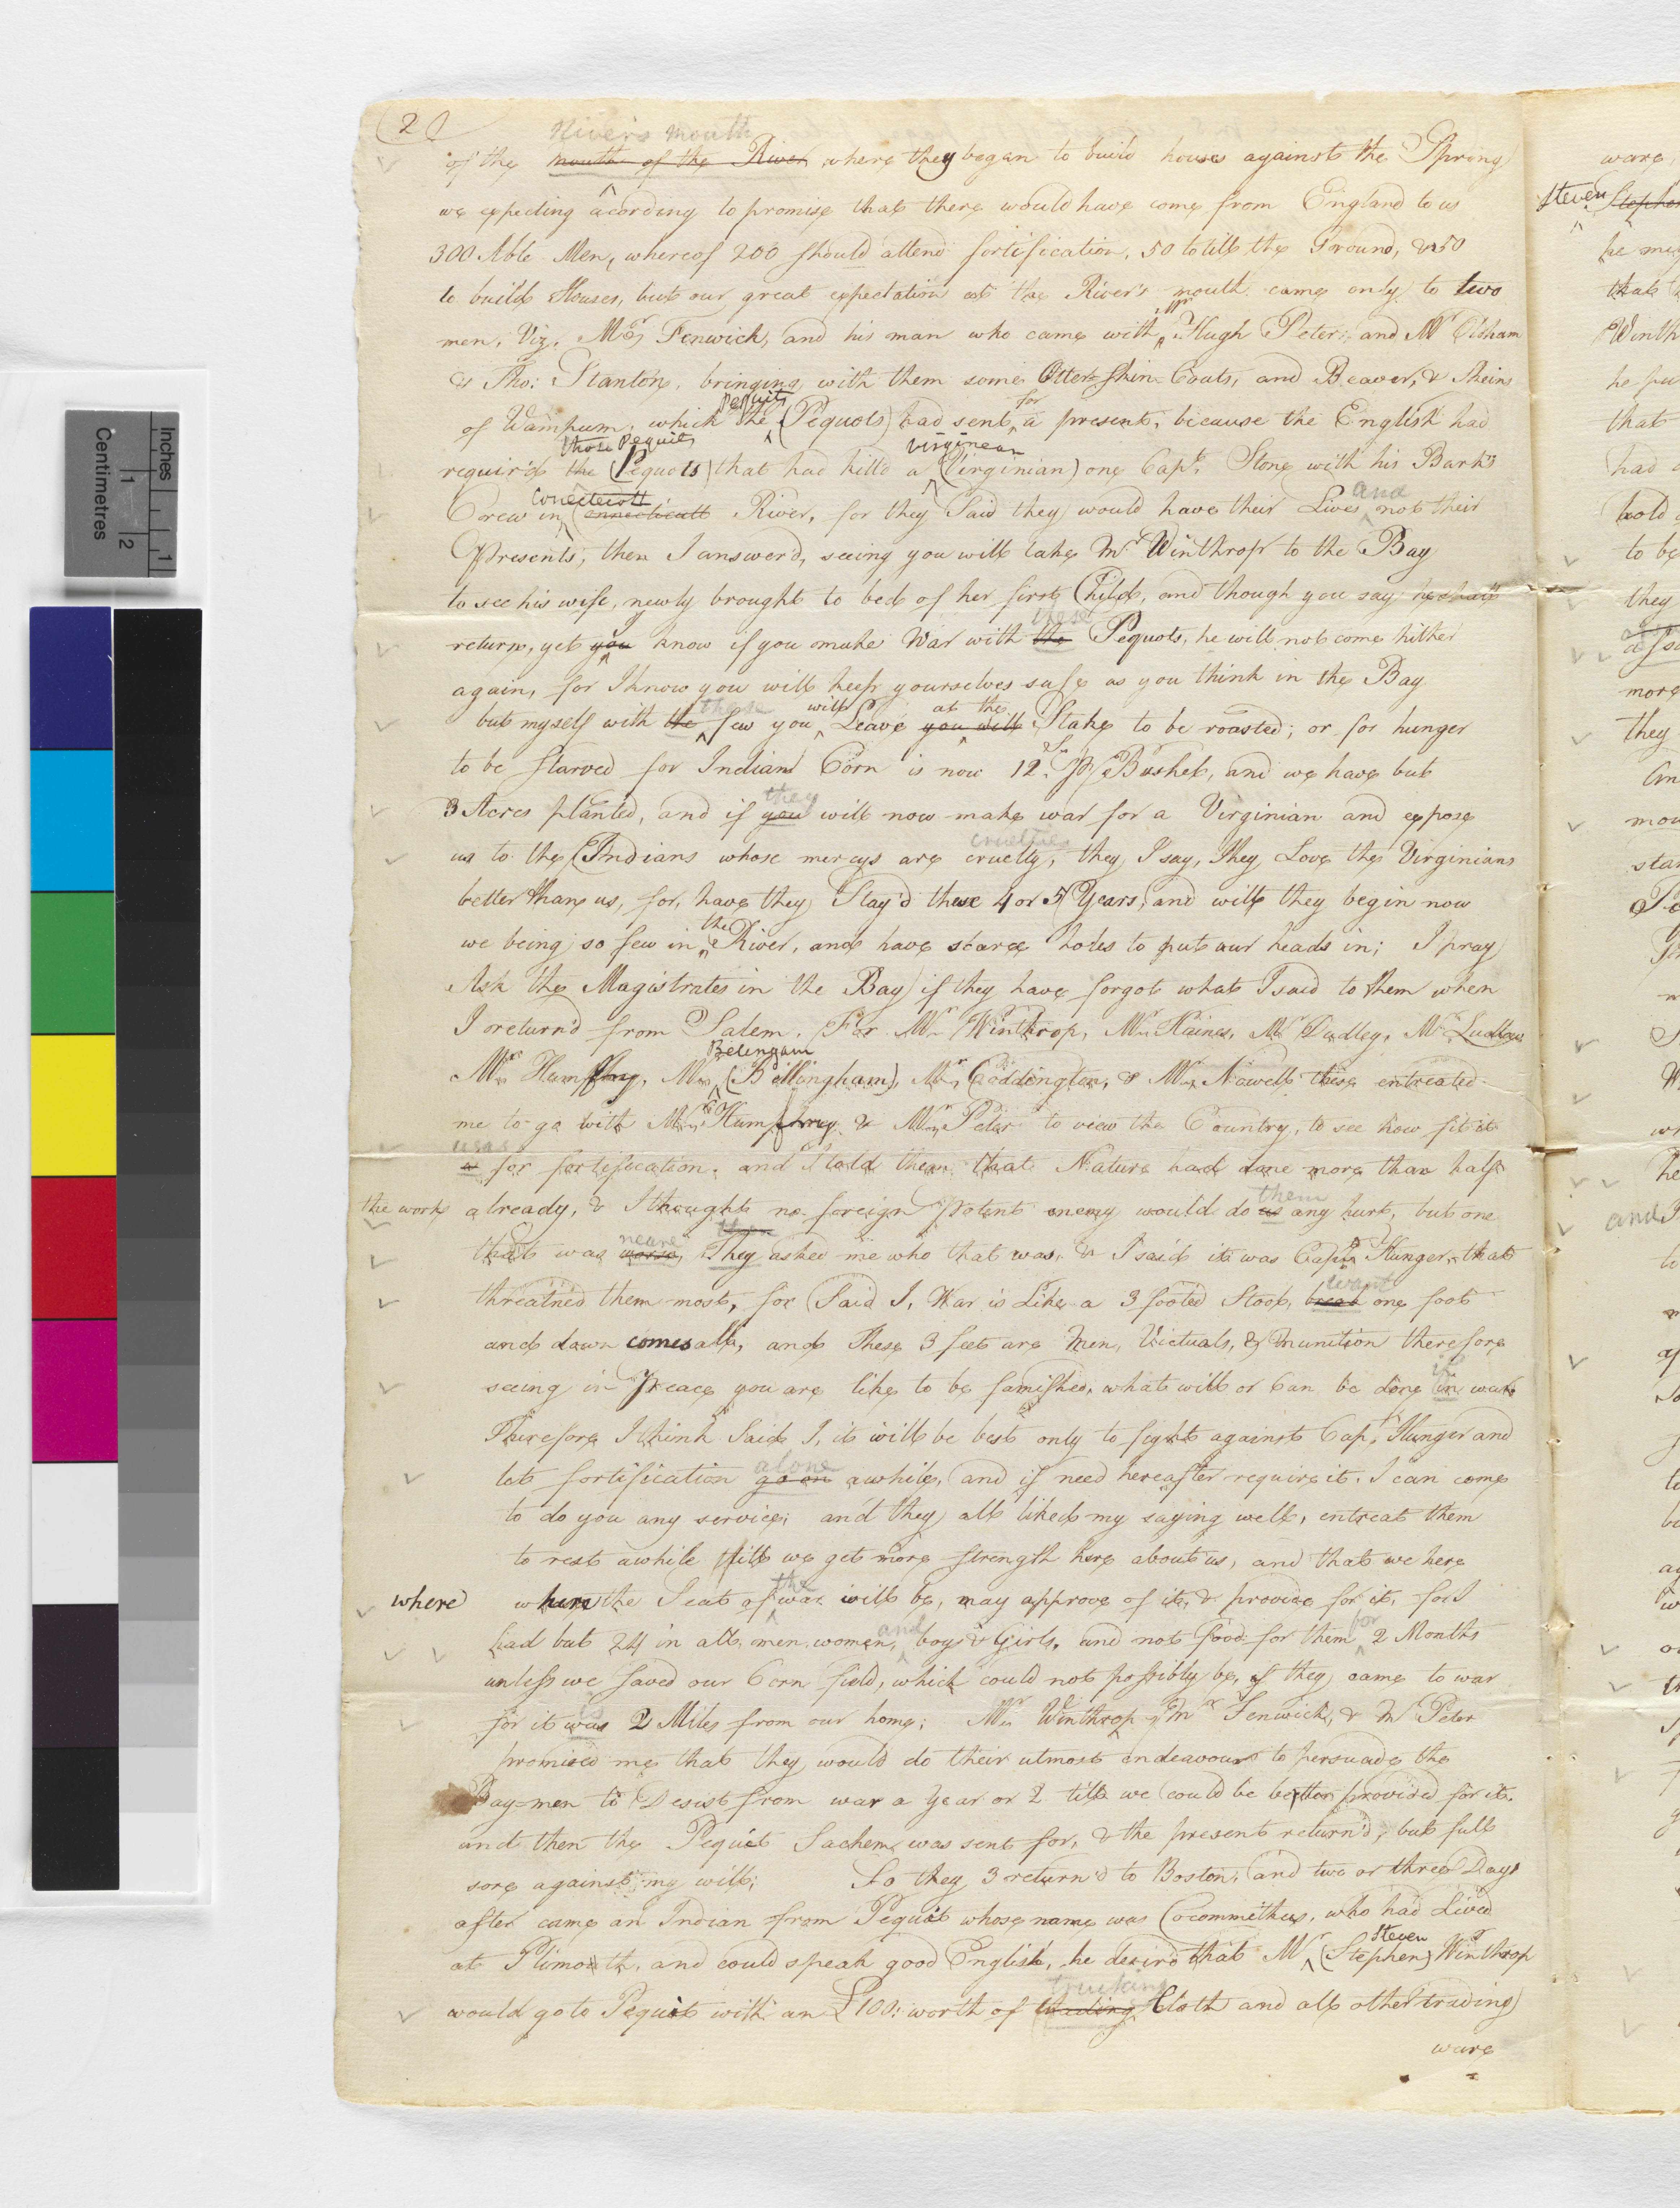 2
Rivers mouth
of the mouth of the River where they began to build houses against the Spring
we expecting acording to promise that there would have come from England to us
300 Able Men, whereof 200 should attend fortification, 50 to till the Ground, & 50
to build Houses, but our great expectation at the River's mouth came only to two
men, Viz. Mr Fenwick, and his man who came with Mr Hugh Peters, and Mr Oldham
& Tho: Stanton, bringing with them some Otter-Skin Coats, and Beaver, & Skeins
Pequits for
of Wampum, which the (Pequots) had sent a present, because the English had
those Pequits Virginean
requir'd the (Pequots) that had kill'd a (Virginian) one Capt. Stone with his Bark's
Conecticott and
Crew in (Connecticutt River, for they Said they would have their Lives not their
Presents, then I answer'd, seeing you will take Mr. Winthrop to the Bay
to see his wife, newly brought to bed of her first Child, and though you say he shall
these
return, yet you know if you make War with the Pequots, he will not come hither
again, for I know you will keep yourselves safe as you think in the Bay
these will at the
but myself with the few you Leave you will Stake to be roasted; or for hunger
to be starved for Indian Corn is now 12s. P Bushel, and we have but
they
3 Acres planted, and if you will now make war for a Virginian and expose
crueltie
us to the Indians whose mercys are cruelty, they I say, they Love the Virginians
better than us, for, have they Stay'd these 4 or 5 Years, and will they begin now
the
we being so few in River, and have scarce holes to put our heads in; I pray
Ask the Magistrates in the Bay if they have forgot what I said to them when
I return'd from Salem. For Mr Winthrop, Mr Haines, Mr Dudley, Mr Ludlow
Belengam
Mr Humfrey, Mr (Bellingham), Mr Coddington, & Mr Nowell these entreated
me to go with Mr Humphrey & Mr Peter to view the Country, to see how fit it
was
is for fortification. and I told them that Nature had done more than half
them
the work already, & I thought no foreign Potent enemy would do us any hurt, but one
neare then
that was worse, They asked me who that was, & I said it was Capt. Hunger that
want
threatned them most, for Said I, War is Like a 3 footed Stool, break one foot
and down comes all, and These 3 feet are Men, Victuals, & Munition therefore
seeing in Peace you are like to be famished, what will or Can be done in war
Therefore I think Said I, it will be best only to fight against Capt. Hunger and
alone
let fortification go on awhile, and if need hereafter require it. I can come
to do you any service; and they all liked my saying well, entreat them
to rest awhile till we get more strength here about us, and that we here
the
where where the Seat of war will be, may approve of it, & provide for it, for I
and for
had but 24 in all, men, women, boys & Girls, and not food for them 2 Months
unless we saved our Corn field, which could not possibly be, if they came to war
is
for it was 2 Miles from our home; Mr Winthrop, Mr Fenwick, & Mr Peter
promised me that they would do their utmost endeavour to persuade the
Bay-men to Desist from war a Year or 2 till we could be better provided for it.
and then the Pequit Sachem was sent for, & the present return'd, but full
sore against my will; So they 3 return'd to Boston, and two or three Days
after came an Indian from Pequit whose name was Cocommithus, who had Lived
Steven
at Plimouth, and could speak good English, he desir'd that Mr (Stephen) Winthrop
trucking
would go to Pequit with an £100: worth of trading Cloth and all other trading
ware